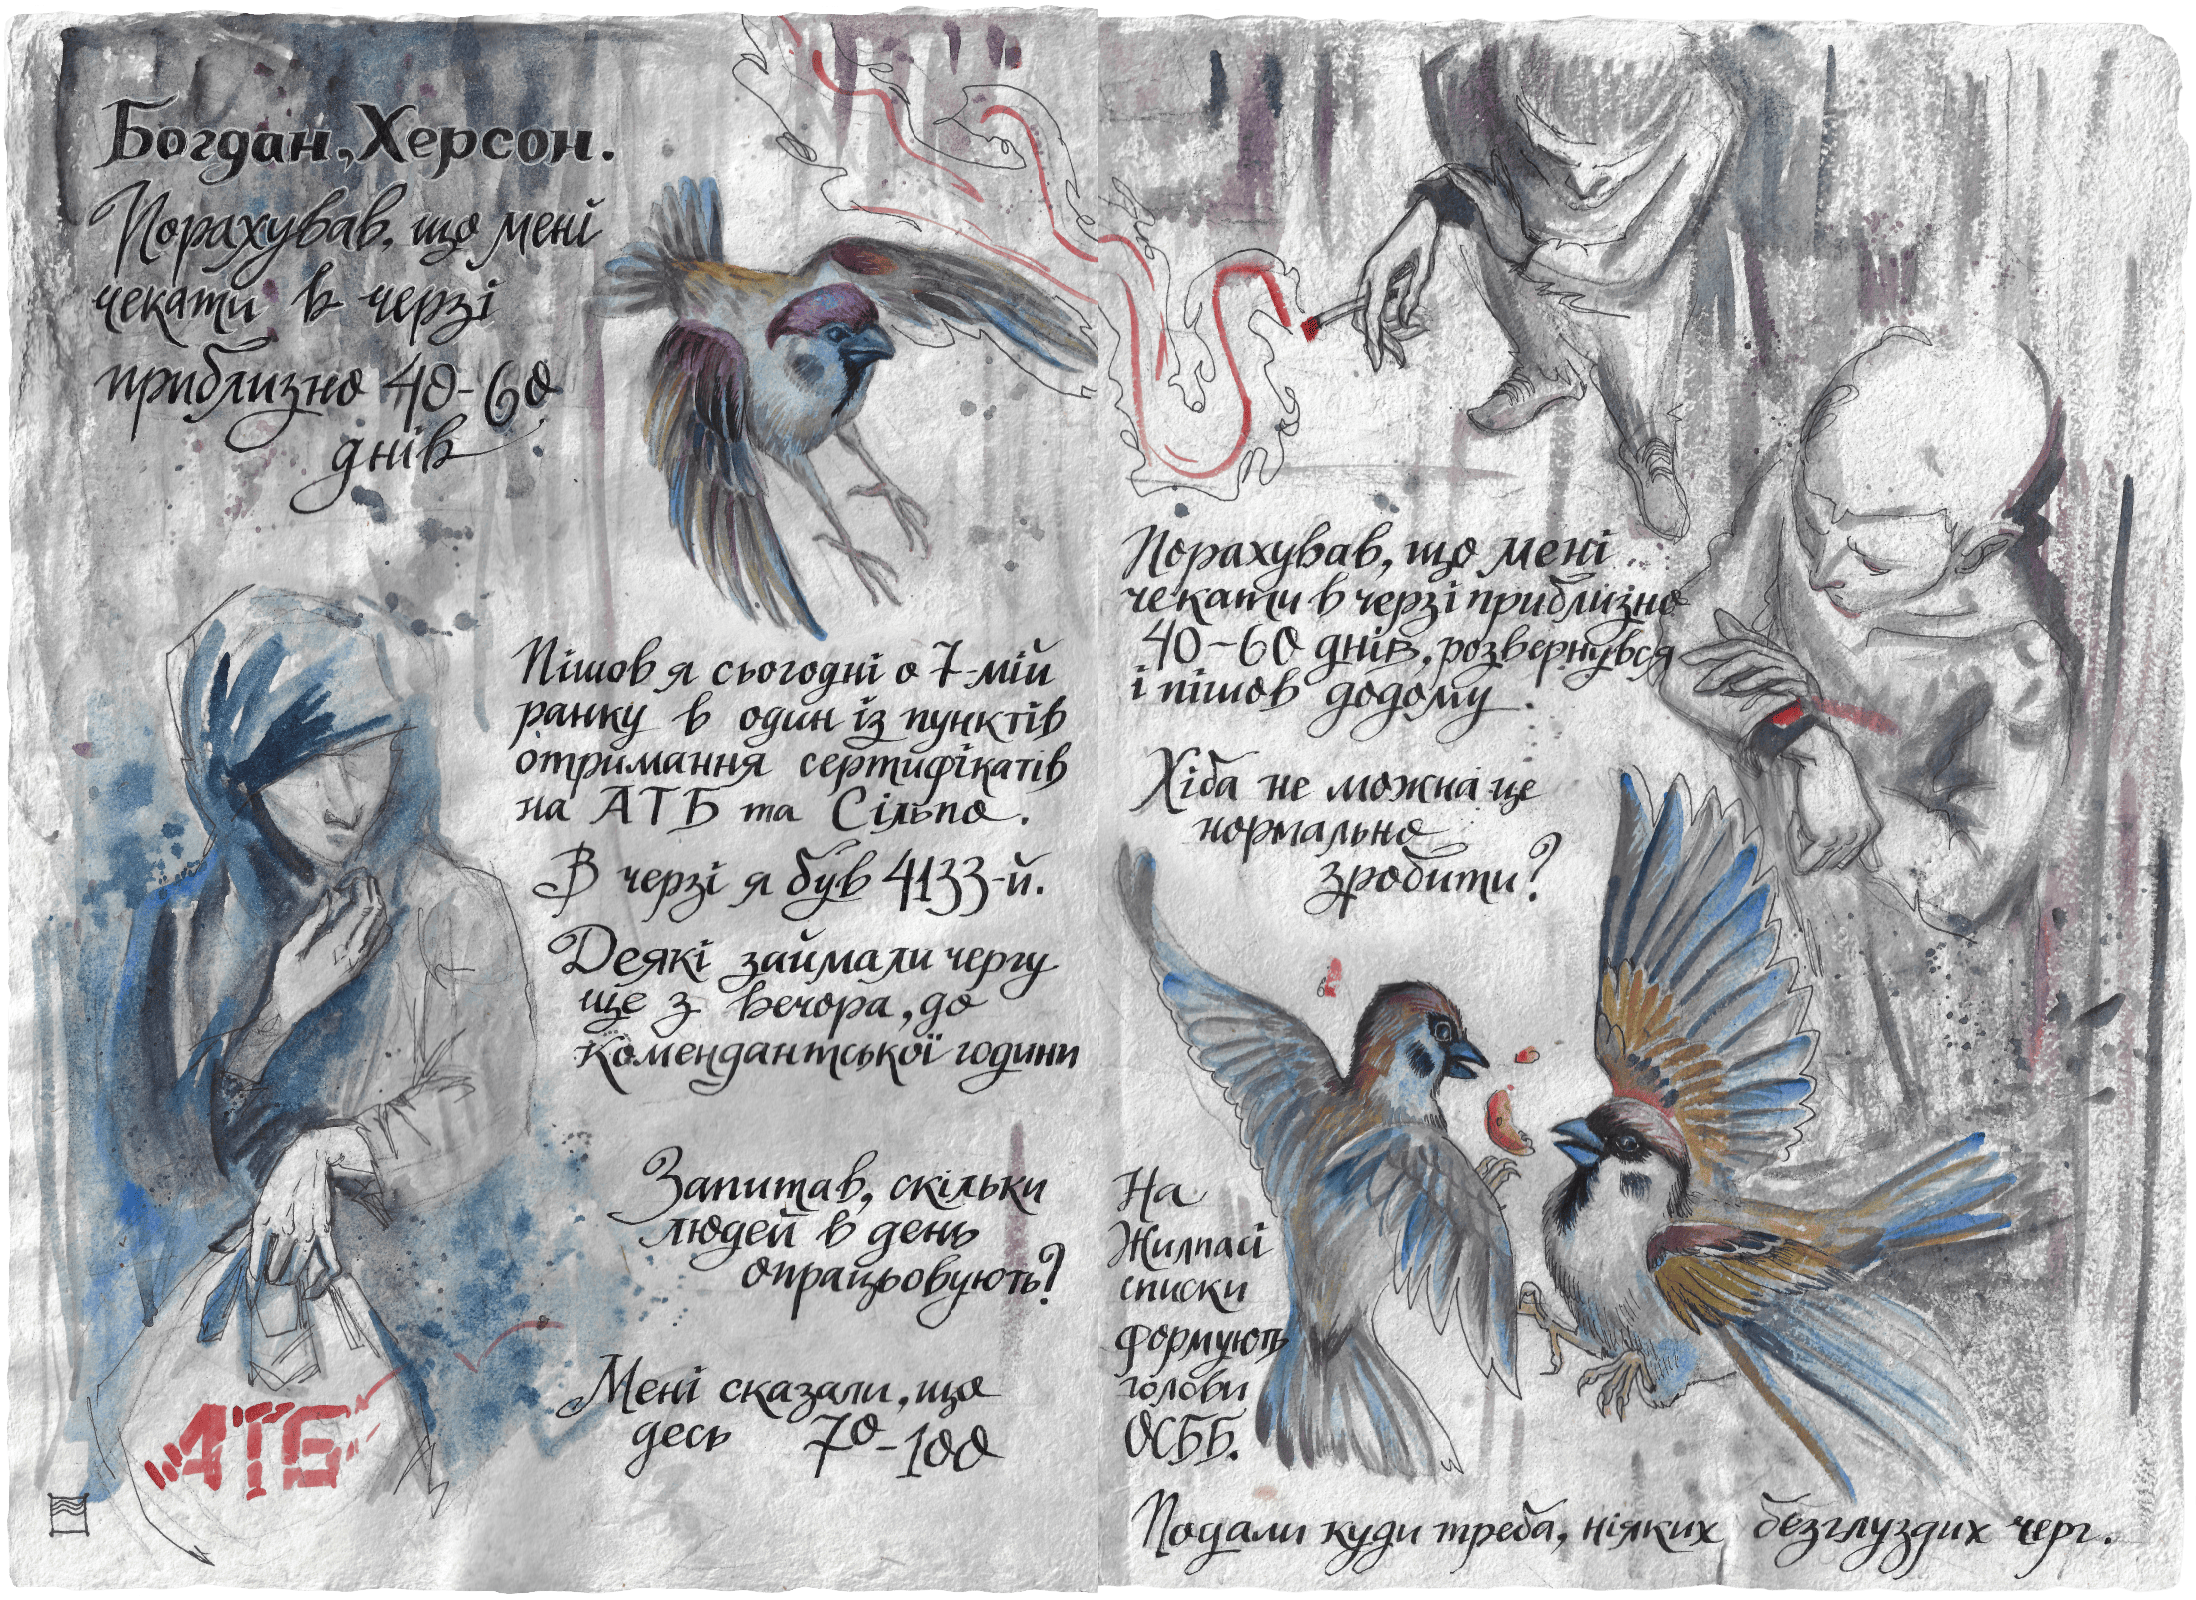 Богдан, Херсон.
Порахував, що мені
чекати в черзі
приблизно 40-60
днів
Пішов я сьогодні о 7-мій
ранку в один із пунктів
отримання сертифікатів
на АТБ та Сільпо.
В черзі я був 4133-й.
Деякі займали чергу
ще з вечора, до
комендантської години
Запитав, скільки
людей в день
опрацьовують?
Мені сказали, що
десь 70-100
АТБ
Порахував, що мені
чекати в черзі приблизно
40-60 днів, розвернувся
і пішов додому.
Хіба не можна це
нормально
зробити?
На
Жилпасі
списки
формують
голови
ОСББ.
Подали куди треба, ніяких безглуздих черг.